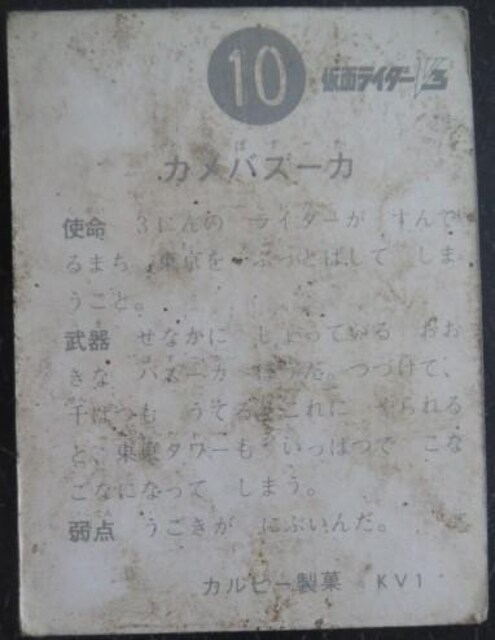 10
仮面ライダーV3
カメバズーカ
使命 3にんの ライダーが すんで
るまち、東京を ぶっとばして しま
うこと。
武器 せなかに しょっている おお
きな バズーカ ほうだ。つづけて、
千ぱつも うてる。これに やられる
と、東京タワーも いっぱつで こな
ごなになって しまう。
弱点 うごきが にぶいんだ。
カルビー製菓 KV1